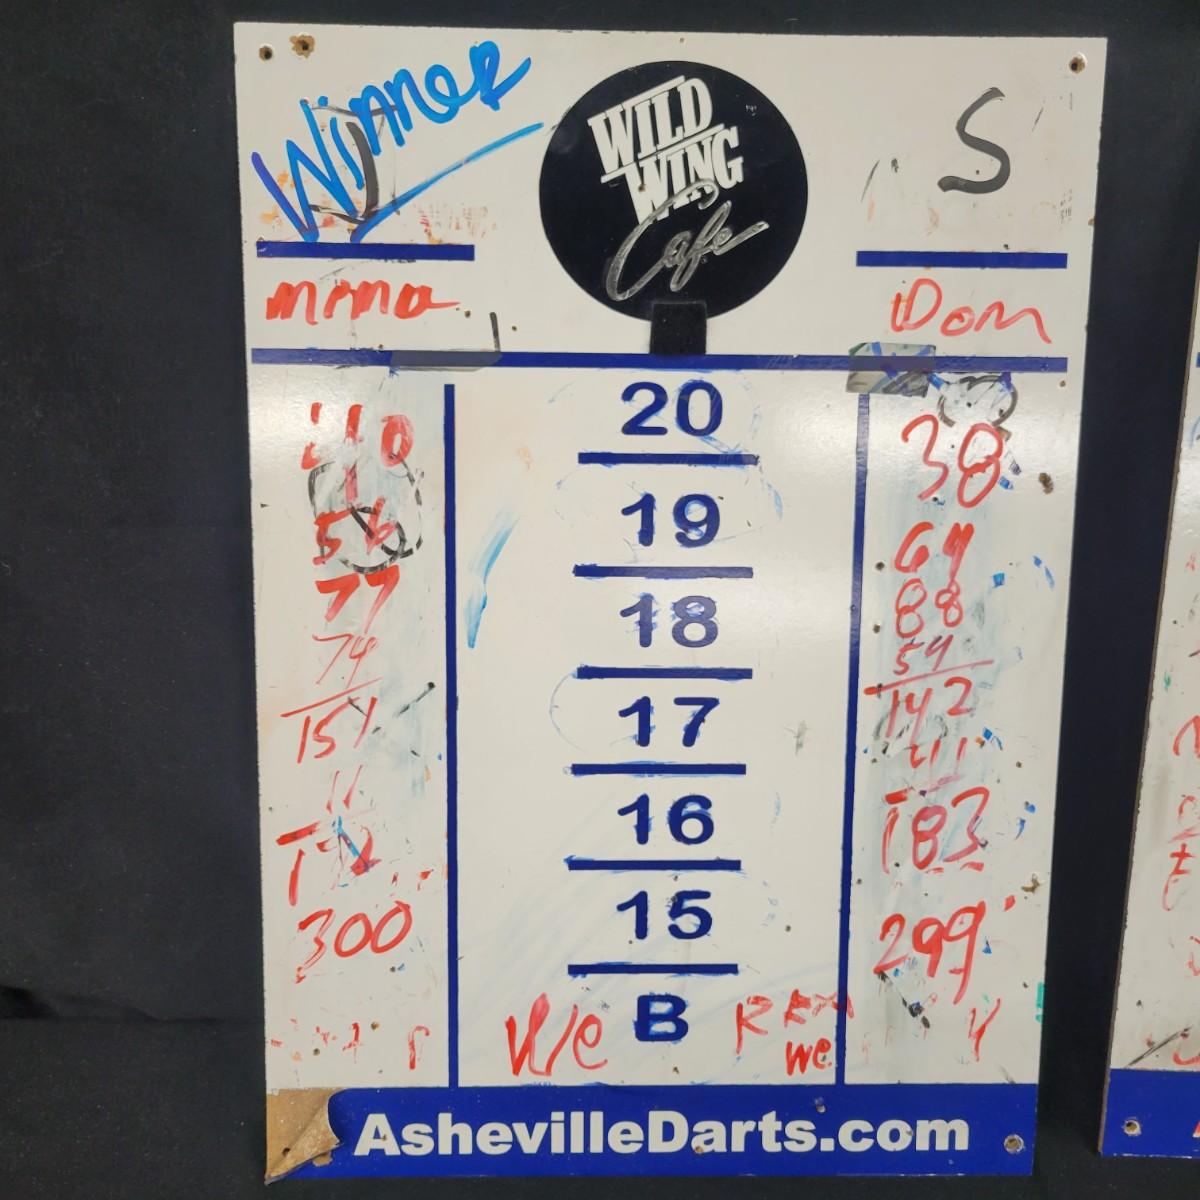 Winner
WILD
WING
Cafe
S
Dom
20
38
19
56
64
77
88
18
74
54
151
142
17
11
41
16
183
300
15
299
We
B
we
AshevilleDarts.com